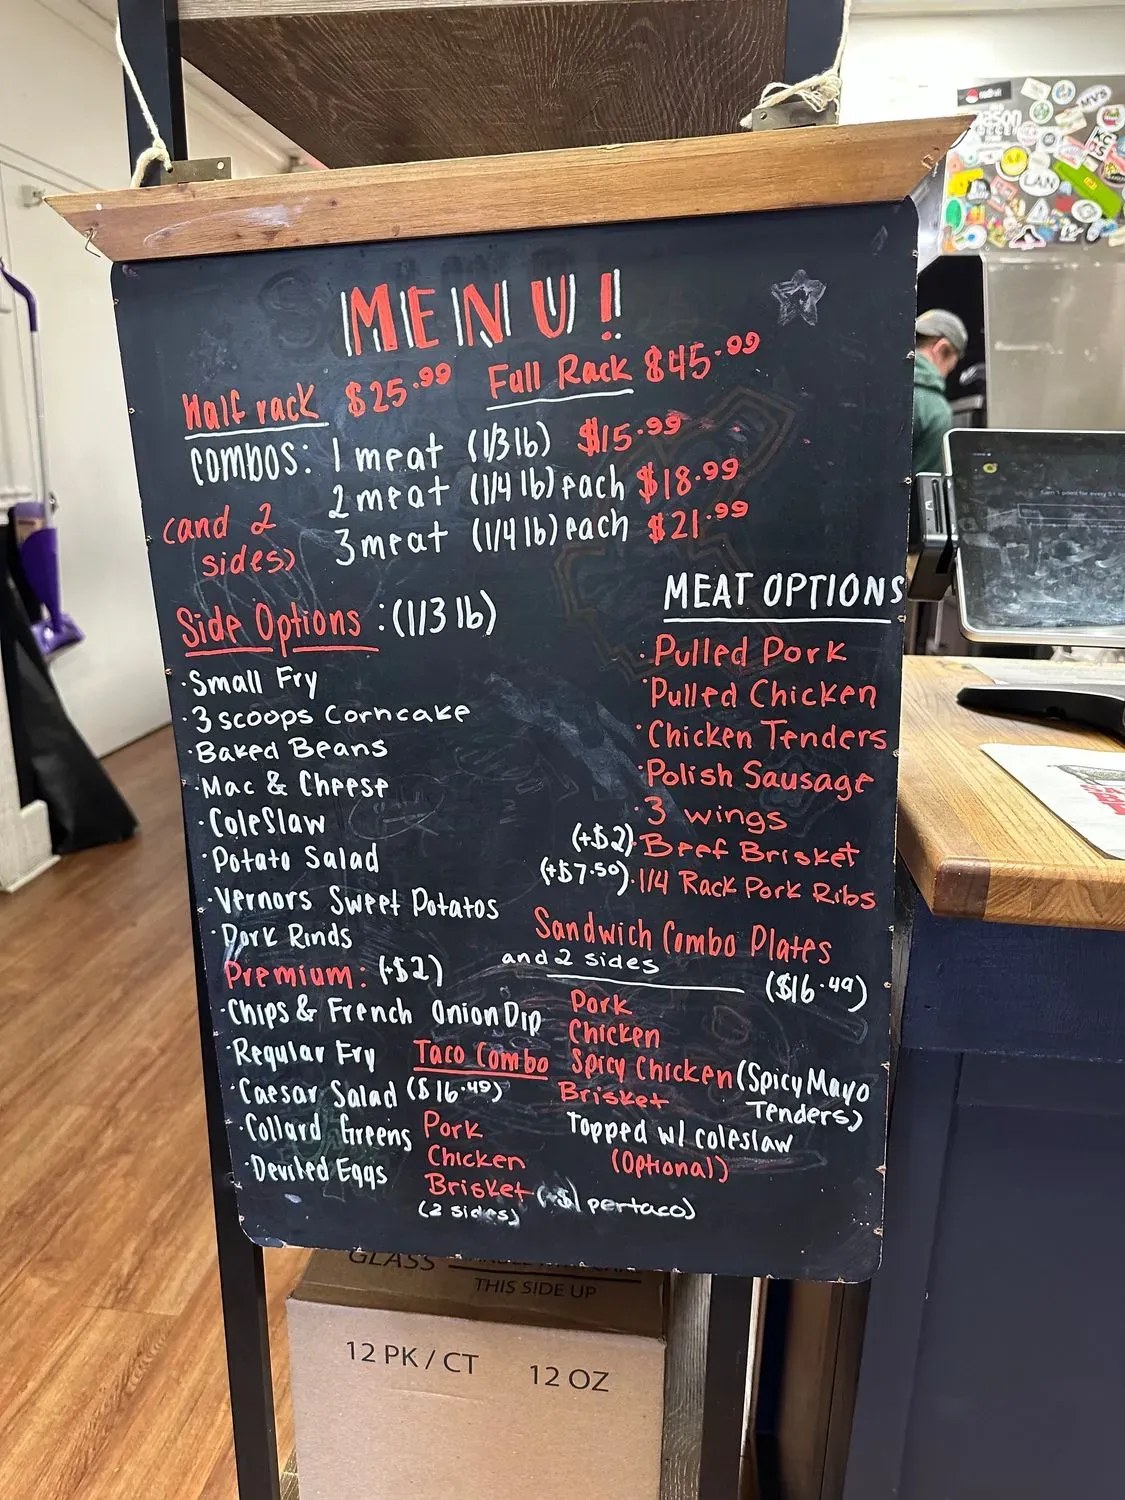 MENU!
Half rack $25.99 Full Rack $45.99
COMBOS: 1 meat (1/3 lb) $15.99
2 meat (1/4 lb) each $18.99
3 meat (1/4 lb) each $21.99
(and 2
sides)
Side Options : (1/3 lb)
· Small Fry
· 3 scoops Corncake
· Baked Beans
· Mac & Cheese
· Coleslaw
· Potato Salad
· Vernors Sweet Potatos
· Pork Rinds
Premium: (+$2)
· Chips & French Onion Dip
· Regular Fry
· Caesar Salad
· Collard Greens
· Deviled Eggs
MEAT OPTIONS
· Pulled Pork
· Pulled Chicken
· Chicken Tenders
· Polish Sausage
· 3 wings
(+$2) · Beef Brisket
(+$7.50) · 1/4 Rack Pork Ribs
Sandwich Combo Plates
and 2 sides
($16.49)
Pork
Chicken
Spicy Chicken (Spicy Mayo
Tenders)
Brisket
Topped w/ coleslaw
(Optional)
Taco Combo
($16.49)
Pork
Chicken
Brisket (+$1 per taco)
(2 sides)
GLASS
THIS SIDE UP
12 PK / CT 12 OZ
LAN
MVS